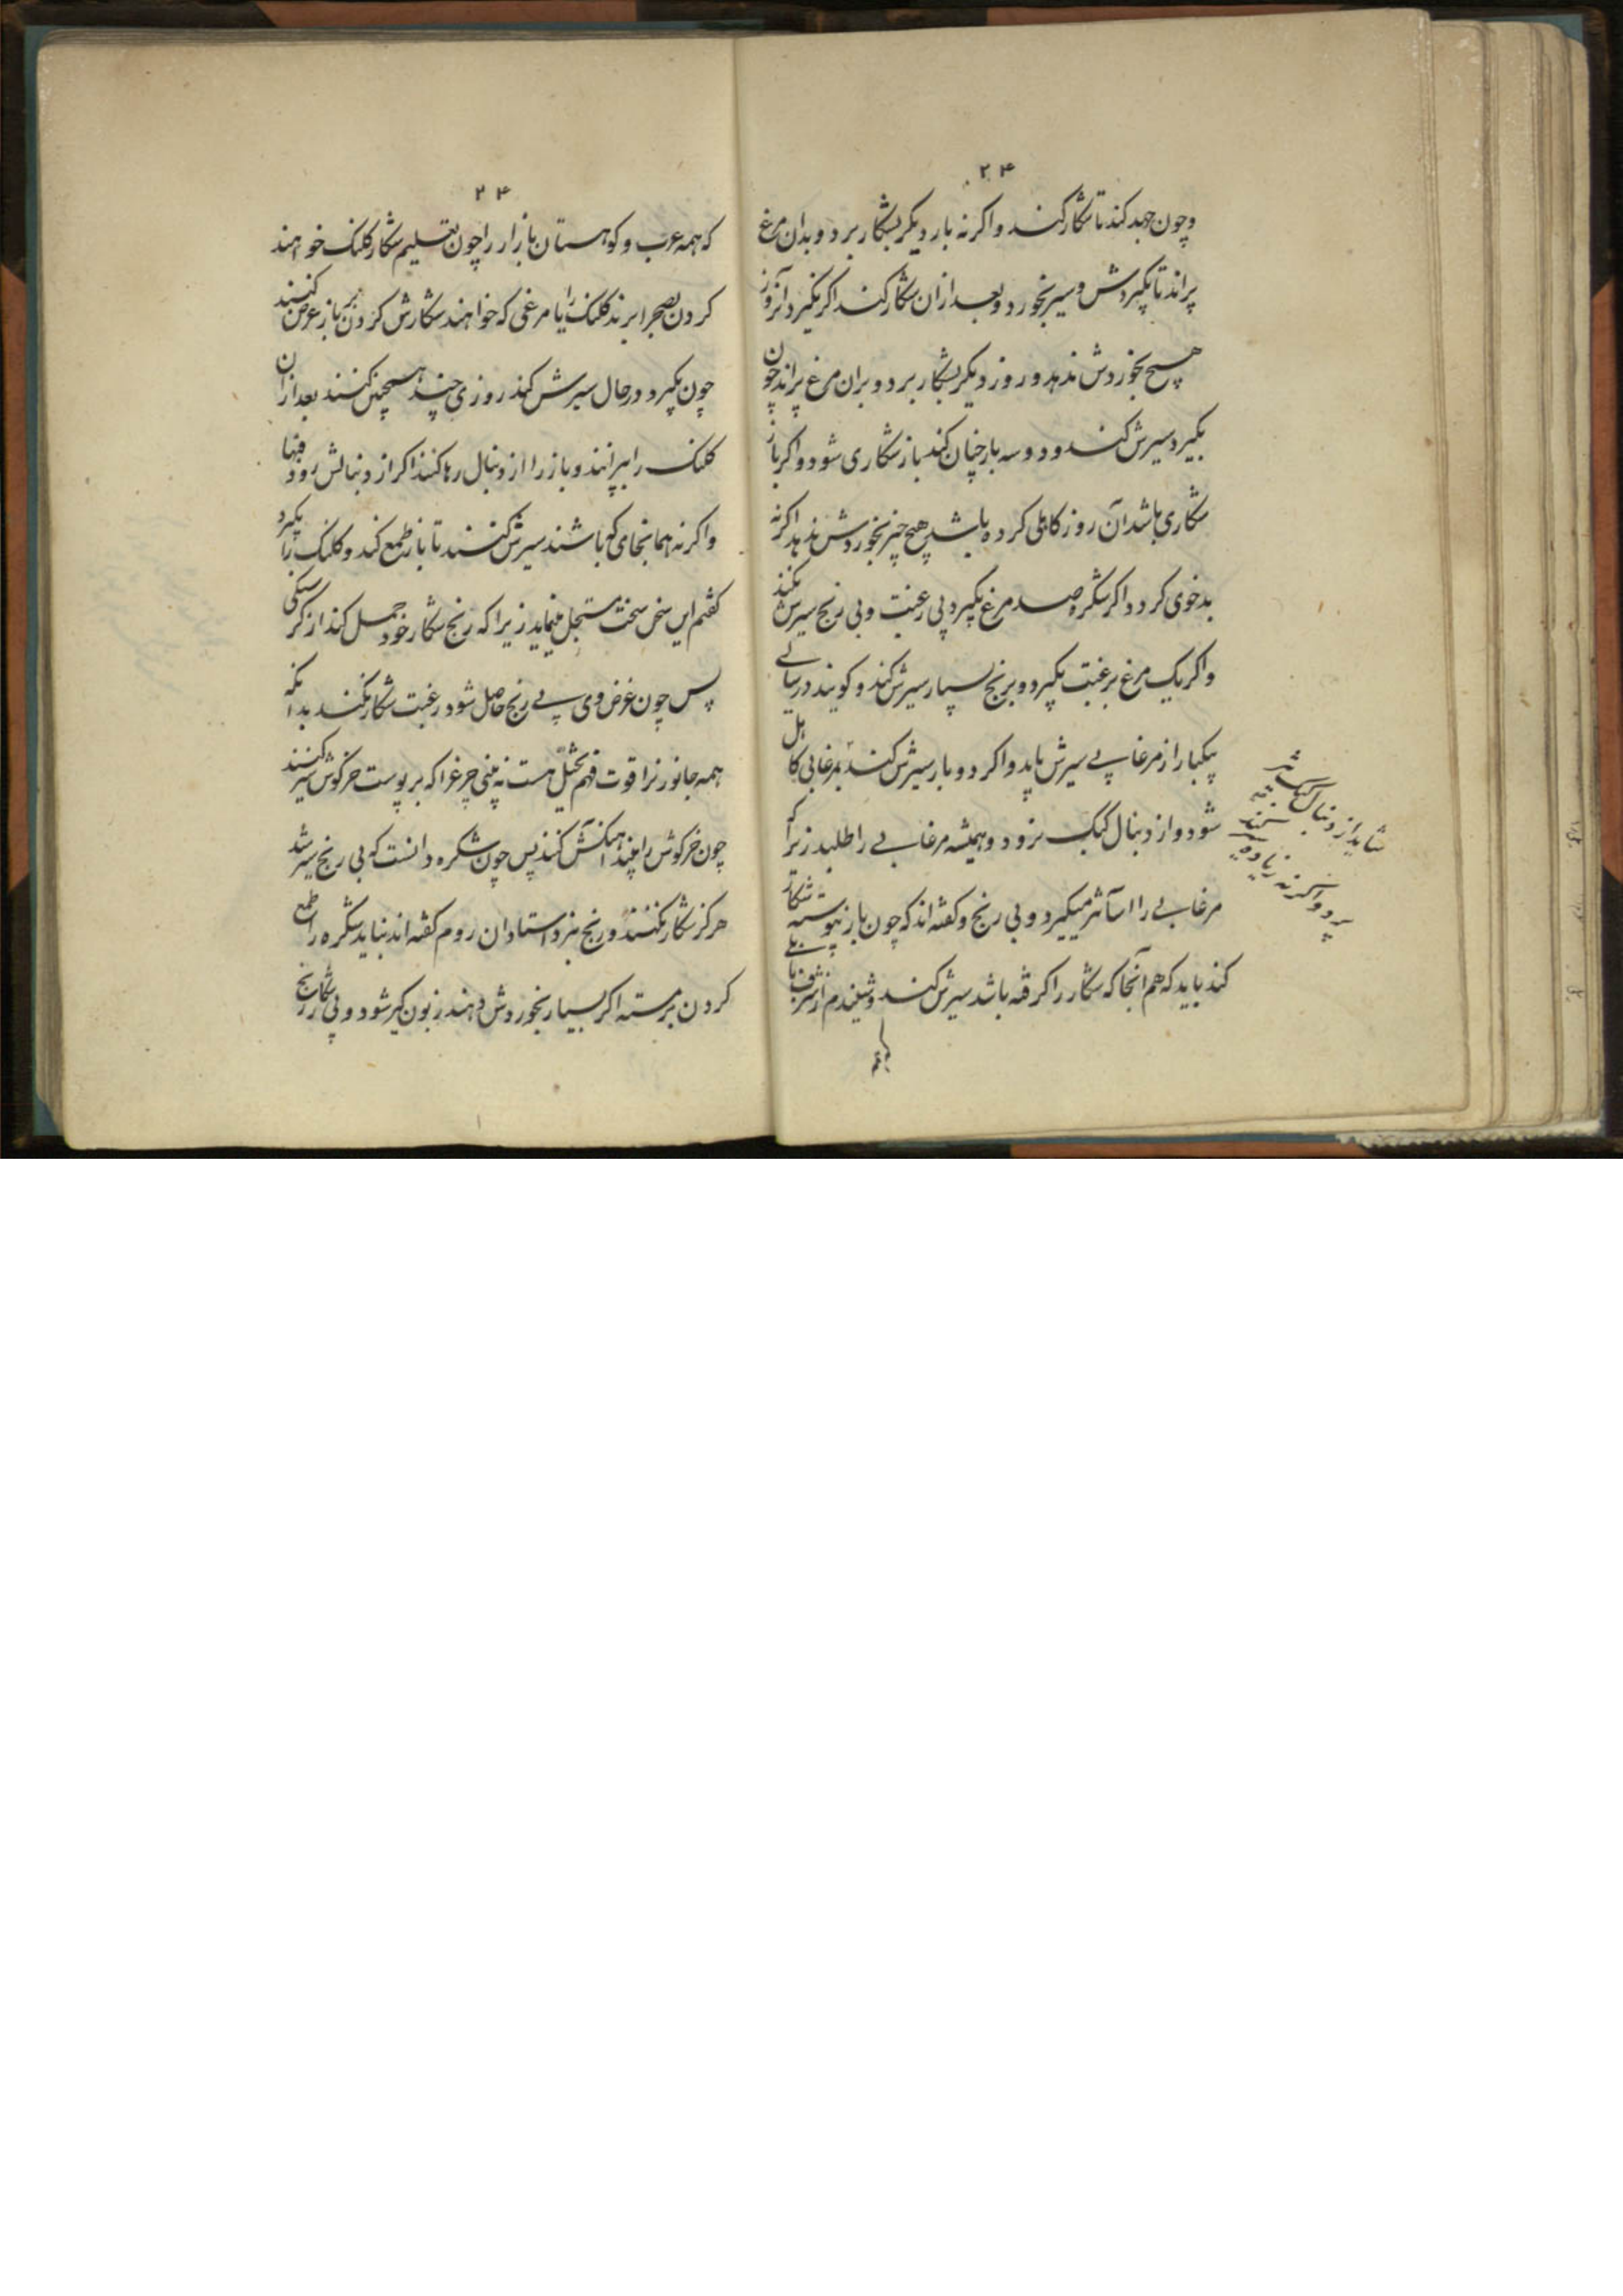 ۲۴
وچون جهد کند تا شکار کند و اکرنه بار دیکر بشکار برد و بدان مرغ
پراند تا بکیردش و سیر بخورد و بعد ازان شکار کند اکر نکیرد آنروز
هیچ بخوردش ندهد و روز دیکر بشکار برد و بران مرغ پراند چون
بکیرد سیرش کند و دو سه بار چنان کند باز شکاری شود و اکر باز
شکاری باشد آن روز کاهلی کرده باشد هیچ چیز بخوردش ندهد اکرنه
بدخوی کردد اکر شکره صد مرغ بکیرد بی رغبت و بی رنج سیرش نکند
و اکر یک مرغ برغبت بکیرد و برنج بسیار سیرش کند و کویند در سالی
یکبار از مرغابی سیرش باید و اکر دو بار سیرش کند بمرغابی کاهل
شود و از دنبال کبک نرود و همیشه مرغابی را طلبد زیرا که
مرغابی را آسانتر میکیرد و بی رنج و کفته اند که چون باز پیوسته شکار
کند باید که هم آنجا که شکار را کرفته باشد سیرش کند و شنیدم از
که همه
شاید از دنبال کبک
پرد و اکرنه زیاده
۲۴
که همه عرب و کوهستان بازدار را چون تعلیم شکار کلنک خواهند
کردن بصحرا برند کلنک را یا مرغی که خواهند شکارش کردن بر باز عرض کنند
چون بکیرد در حال سیرش کند روزی چند همچنین کنند بعد ازان
کلنک را بپرانند و باز را از دنبال رها کنند اکر از دنبالش رود فبها
و اکرنه همانجای که باشند سیرش کنند تا باز طمع کند و کلنک را بکیرد
کفتم این سخن سخت مستجل مینماید زیرا که رنج شکار خود حمل کند از کرسنکی
پس چون غرض وی بی رنج حاصل شود رغبت شکار نکند بدانکه
همه جانورانرا قوت فهم تخیل هست نه بینی چرغ را که بر پوست خرکوش سیر کنند
چون خرکوش را بیند آهنکش کند پس چون شکره دانست که بی رنج سیر شد
هرکز شکار نکند و رنج نبرد استادان روم کفته اند نباید شکره را طمع
کردن بر مسته اکر بسیار بخوردش دهند زبون کیر شود و بی رنج شکار